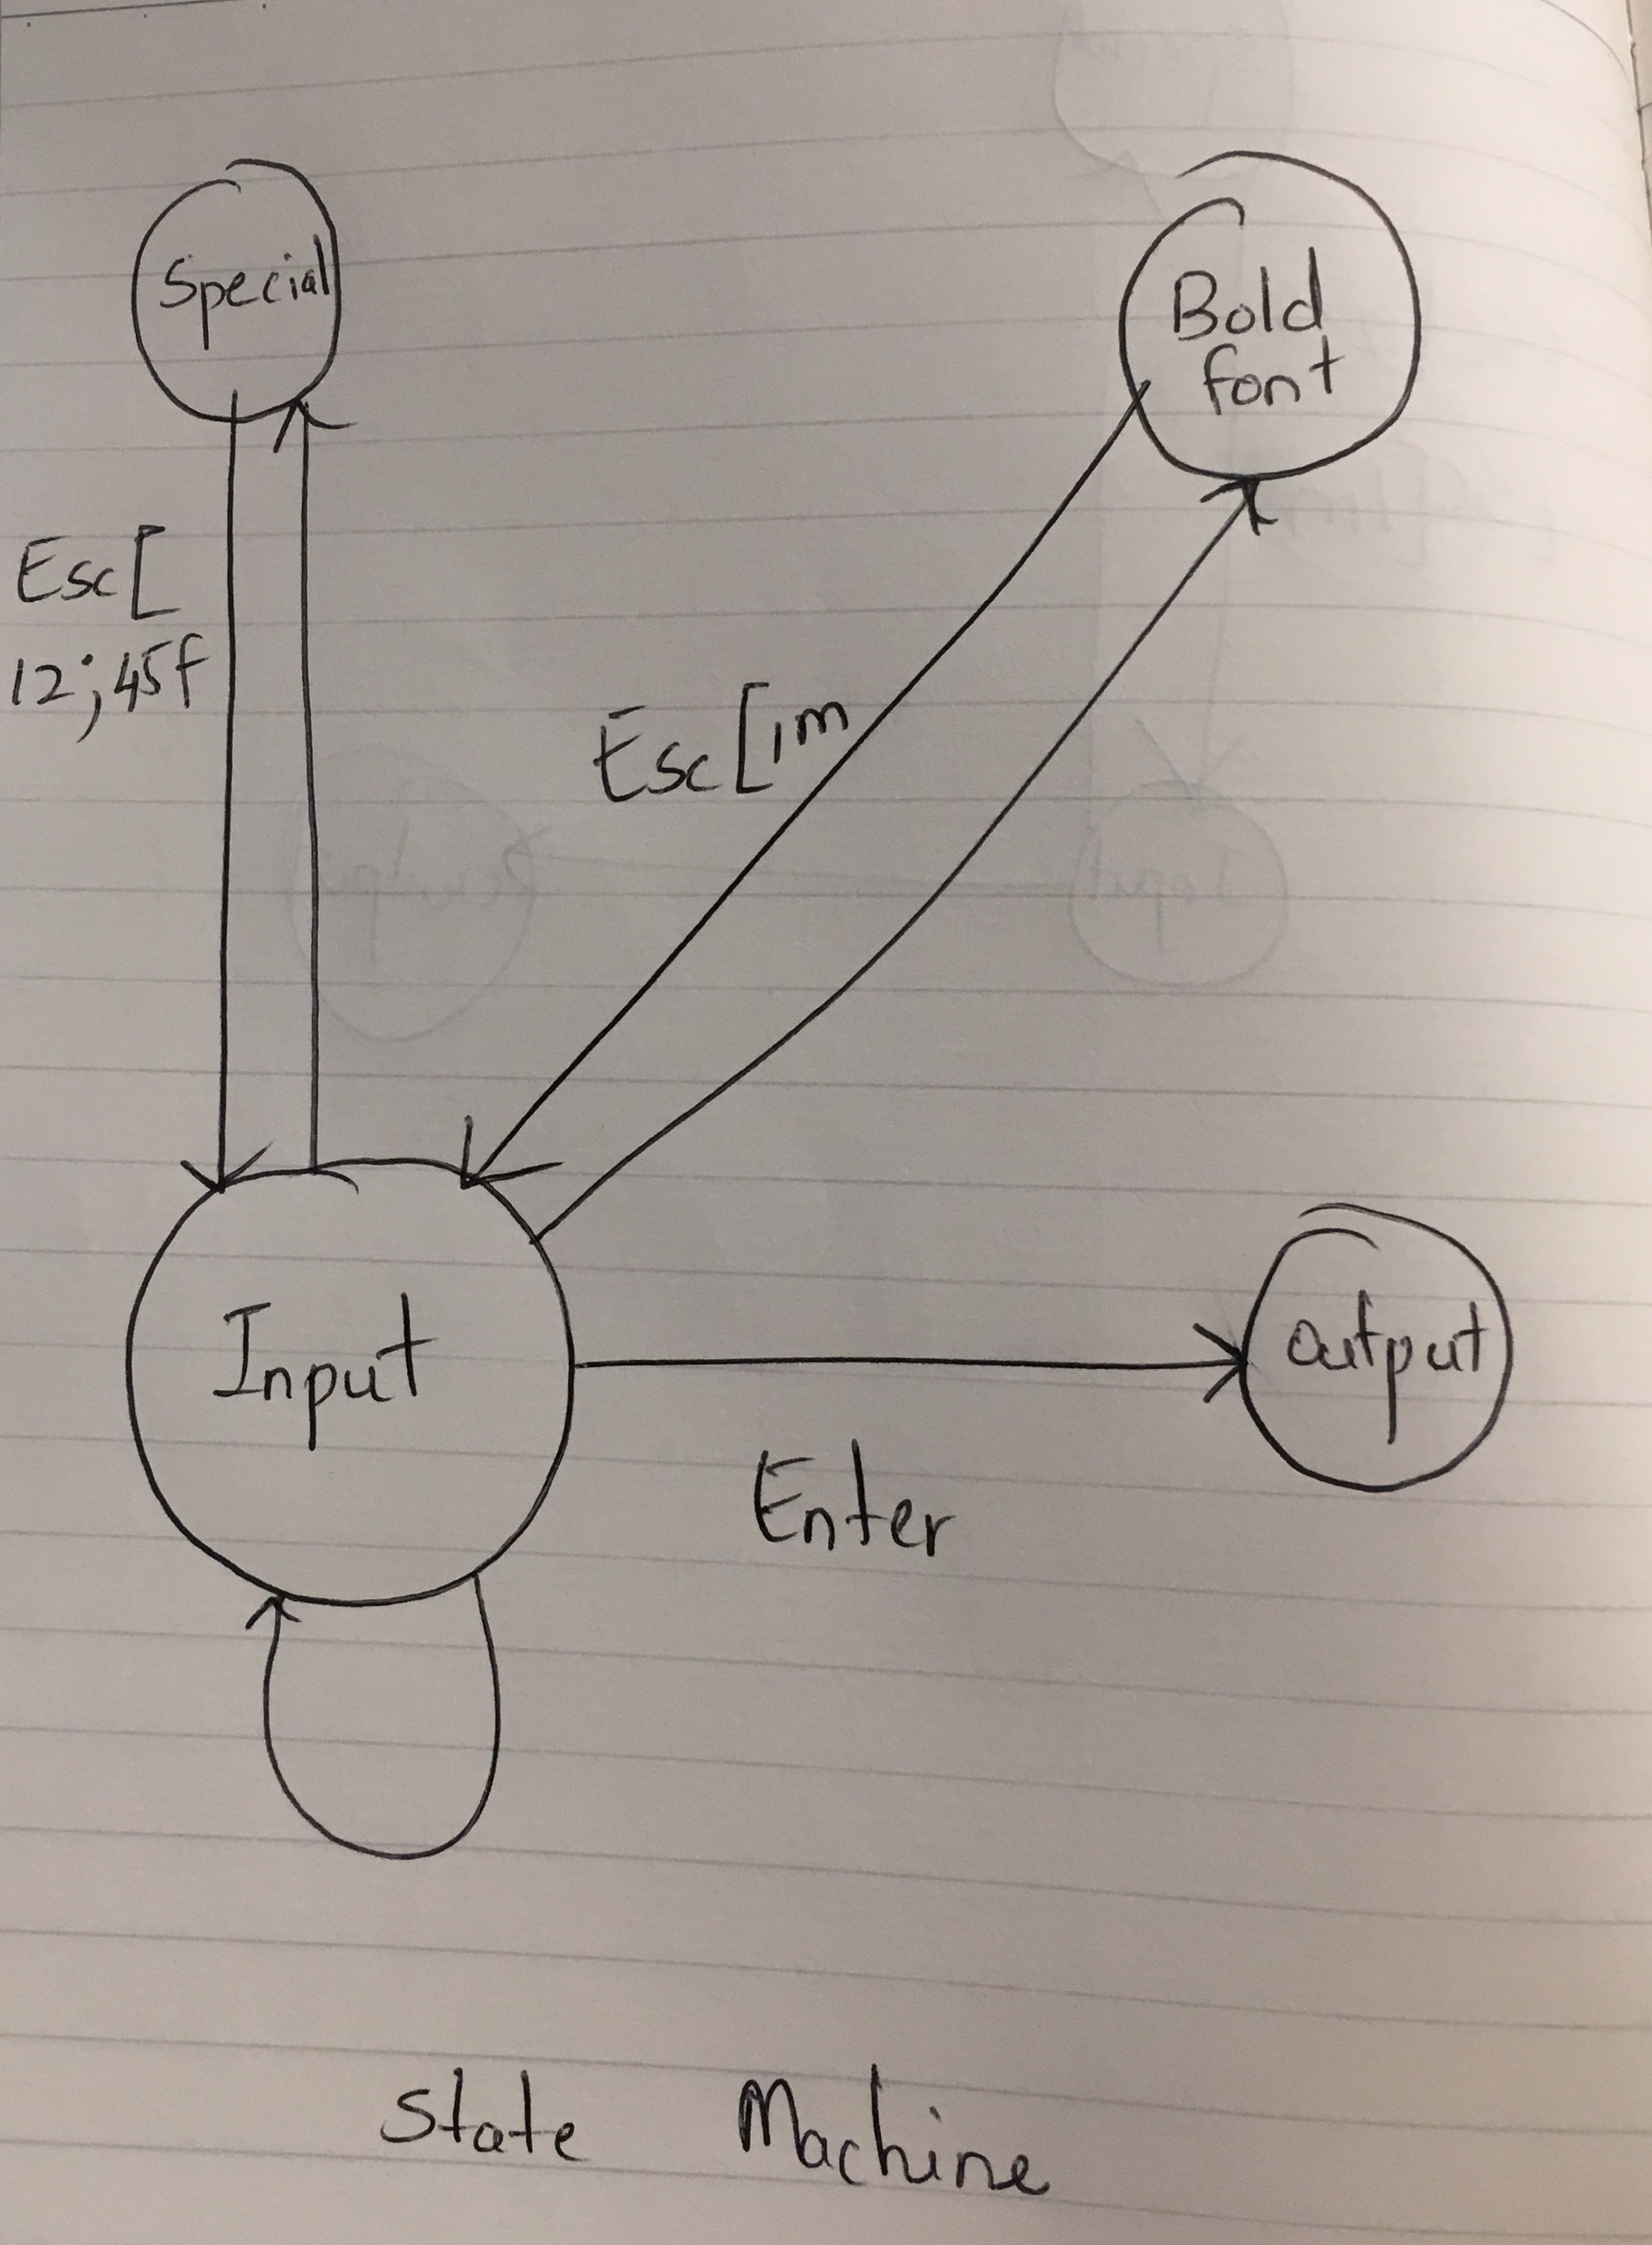 Special
Bold
font
Esc[
12;45f
Esc[1m
Input
Output
Enter
State Machine